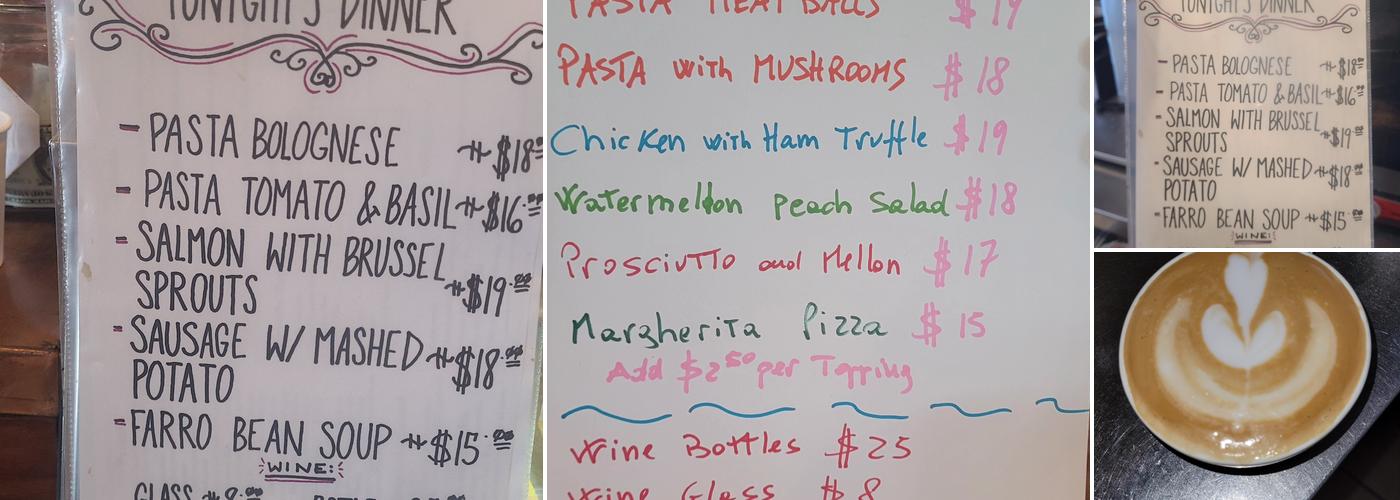 TONIGHT'S DINNER
- PASTA BOLOGNESE $18.00
- PASTA TOMATO & BASIL $16.00
- SALMON WITH BRUSSEL
SPROUTS $19.00
- SAUSAGE W/ MASHED
POTATO $18.00
- FARRO BEAN SOUP $15.00
WINE:
GLASS
PASTA MEAT BALLS $19
PASTA with MUSHROOMS $18
Chicken with Ham Truffle $19
Watermellon peach Salad $18
Prosciutto and Mellon $17
Margherita Pizza $15
Add $2.50 per Topping
Wine Bottles $25
Wine Glass $8
TONIGHT'S DINNER
- PASTA BOLOGNESE $18.00
- PASTA TOMATO & BASIL $16.00
- SALMON WITH BRUSSEL
SPROUTS $19.00
- SAUSAGE W/ MASHED
POTATO $18.00
- FARRO BEAN SOUP $15.00
WINE: